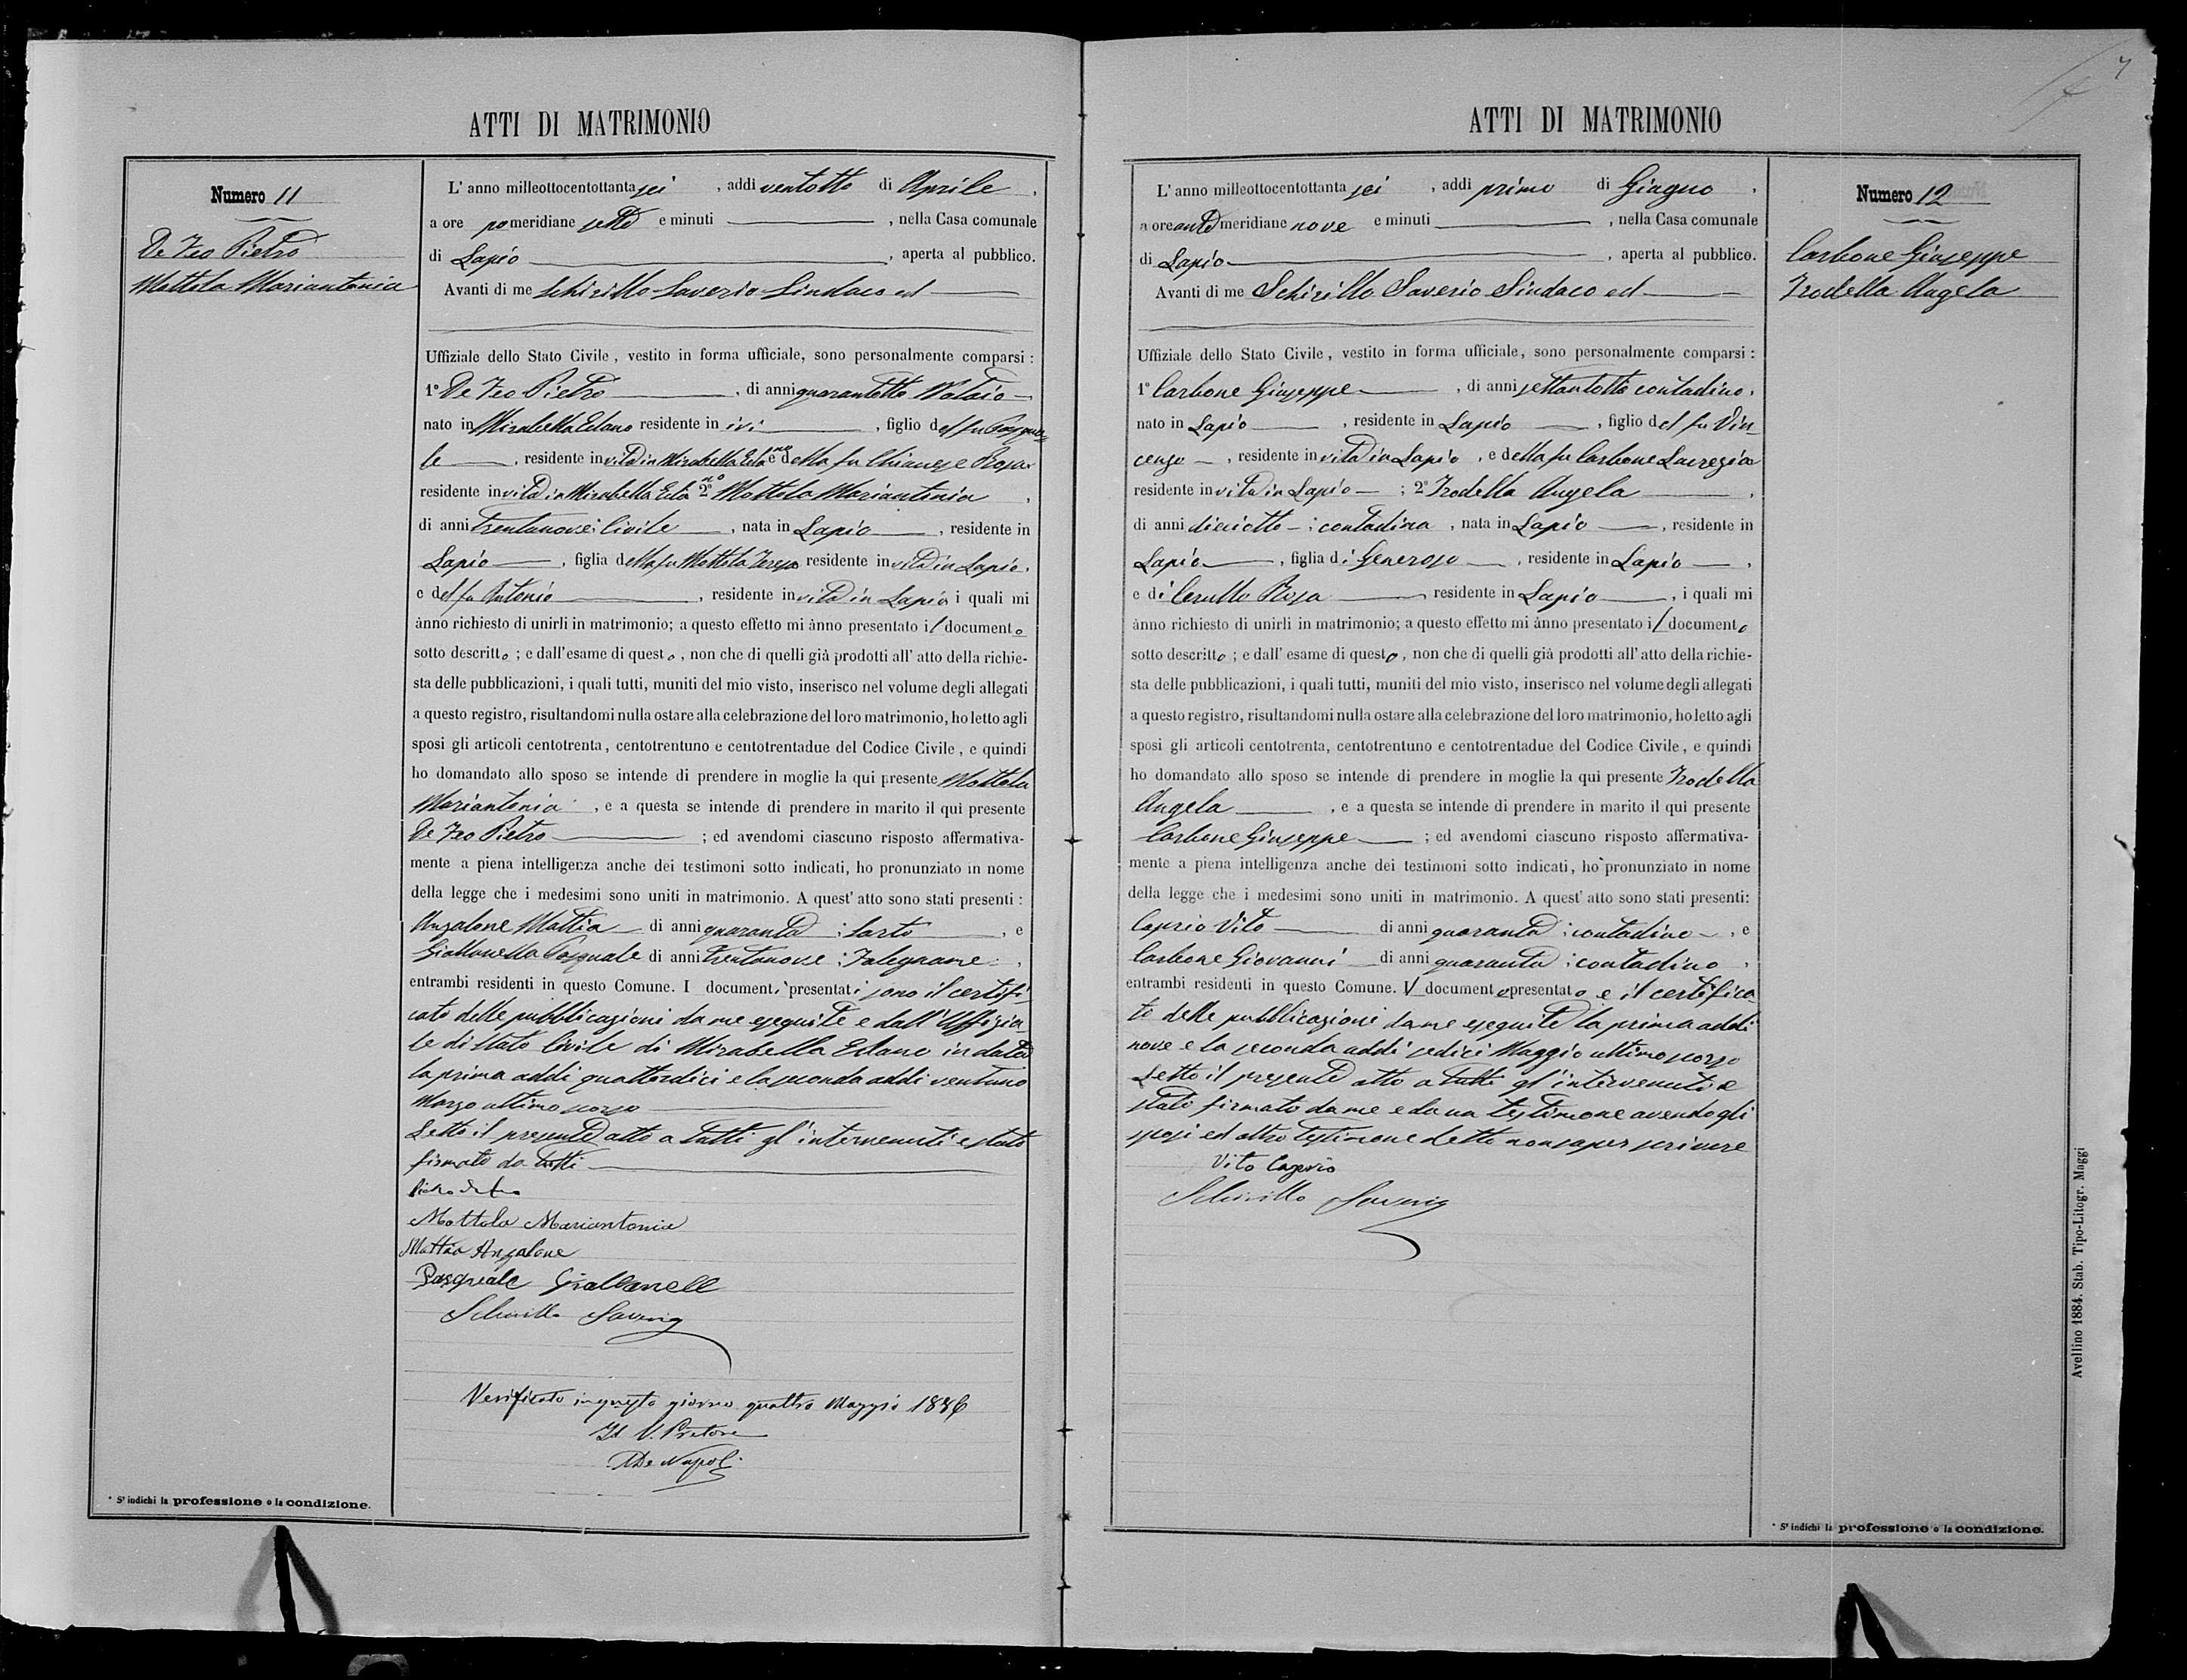 ATTI DI MATRIMONIO
Numero 11
De Feo Pietro
Mottola Mariantonia
L' anno milleottocentottanta sei , addi ventotto di Aprile ,
a ore pomeridiane sette e minuti , nella Casa comunale
di Lapio , aperta al pubblico.
Avanti di me Schirillo Saverio Sindaco ed
Uffiziale dello Stato Civile, vestito in forma ufficiale, sono personalmente comparsi :
1° De Feo Pietro , di anni quarantotto Notaio
nato in Mirabella Eclano residente in ivi , figlio del fu Pasqua
le , residente in vita in Mirabella Eclano e della fu Chianese Rosa
residente in vita in Mirabella Eclano 2° Mottola Mariantonia ,
di anni trentanove : Civile , nata in Lapio , residente in
Lapio , figlia della fu Mottola Teresa residente in vita in Lapio ,
e del fu Antonio , residente in vita in Lapio i quali mi
ànno richiesto di unirli in matrimonio; a questo effetto mi ànno presentato il documento
sotto descritto ; e dall'esame di questo , non che di quelli già prodotti all' atto della richie-
sta delle pubblicazioni, i quali tutti, muniti del mio visto, inserisco nel volume degli allegati
a questo registro, risultandomi nulla ostare alla celebrazione del loro matrimonio, ho letto agli
sposi gli articoli centotrenta, centotrentuno e centotrentadue del Codice Civile, e quindi
ho domandato allo sposo se intende di prendere in moglie la qui presente Mottola
Mariantonia , e a questa se intende di prendere in marito il qui presente
De Feo Pietro ; ed avendomi ciascuno risposto affermativa-
mente a piena intelligenza anche dei testimoni sotto indicati, ho pronunziato in nome
della legge che i medesimi sono uniti in matrimonio. A quest' atto sono stati presenti :
Anzalone Mattia di anni quaranta : Sarto , e
Giallonella Pasquale di anni trentanove : Falegname ,
entrambi residenti in questo Comune. I documenti presentati sono il certifi-
cato delle pubblicazioni da me eseguite e dall' Uffizia-
le di Stato Civile di Mirabella Eclano in data
la prima addi quattordici e la seconda addi ventuno
Marzo ultimo scorso
Letto il presente atto a tutti gl' intervenuti e stato
firmato da tutti
Pietro de Feo
Mottola Mariantonia
Mattia Anzalone
Pasquale Giallonella
Schirillo Saverio
Verificato in questo giorno quattro Maggio 1886
Il V. Pretore
De Napoli
* S' indichi la professione o la condizione.
7
ATTI DI MATRIMONIO
Numero 12
Carbone Giuseppe
Trodella Angela
L' anno milleottocentottanta sei , addi primo di Giugno ,
a ore antemeridiane nove e minuti , nella Casa comunale
di Lapio , aperta al pubblico.
Avanti di me Schirillo Saverio Sindaco ed
Uffiziale dello Stato Civile, vestito in forma ufficiale, sono personalmente comparsi :
1° Carbone Giuseppe , di anni settantotto contadino ,
nato in Lapio , residente in Lapio , figlio del fu Vin-
cenzo , residente in vita in Lapio , e della fu Carbone Lucrezia
residente in vita in Lapio ; 2° Trodella Angela ,
di anni dieciotto : contadina , nata in Lapio , residente in
Lapio , figlia di Generoso , residente in Lapio ,
e di Cerullo Rosa residente in Lapio , i quali mi
ànno richiesto di unirli in matrimonio; a questo effetto mi ànno presentato il documento
sotto descritto ; e dall' esame di questo , non che di quelli già prodotti all' atto della richie-
sta delle pubblicazioni, i quali tutti, muniti del mio visto, inserisco nel volume degli allegati
a questo registro, risultandomi nulla ostare alla celebrazione del loro matrimonio, ho letto agli
sposi gli articoli centotrenta, centotrentuno e centotrentadue del Codice Civile, e quindi
ho domandato allo sposo se intende di prendere in moglie la qui presente Trodella
Angela , e a questa se intende di prendere in marito il qui presente
Carbone Giuseppe ; ed avendomi ciascuno risposto affermativa-
mente a piena intelligenza anche dei testimoni sotto indicati, ho pronunziato in nome
della legge che i medesimi sono uniti in matrimonio. A quest' atto sono stati presenti:
Caprio Vito di anni quaranta : contadino , e
Carbone Giovanni di anni quaranta : contadino ,
entrambi residenti in questo Comune. Il documento presentato e il certifica-
to delle pubblicazioni da me eseguite la prima addi
nove e la seconda addi sedici Maggio ultimo scorso
Letto il presente atto a tutti gl' intervenuti e
stato firmato da me e da un testimone avendo gli
sposi ed altro testimone detto non saper scrivere
Vito Caprio
Schirillo Saverio
* S' indichi la professione o la condizione.
Avellino 1884. Stab. Tipo-Litogr. Maggi